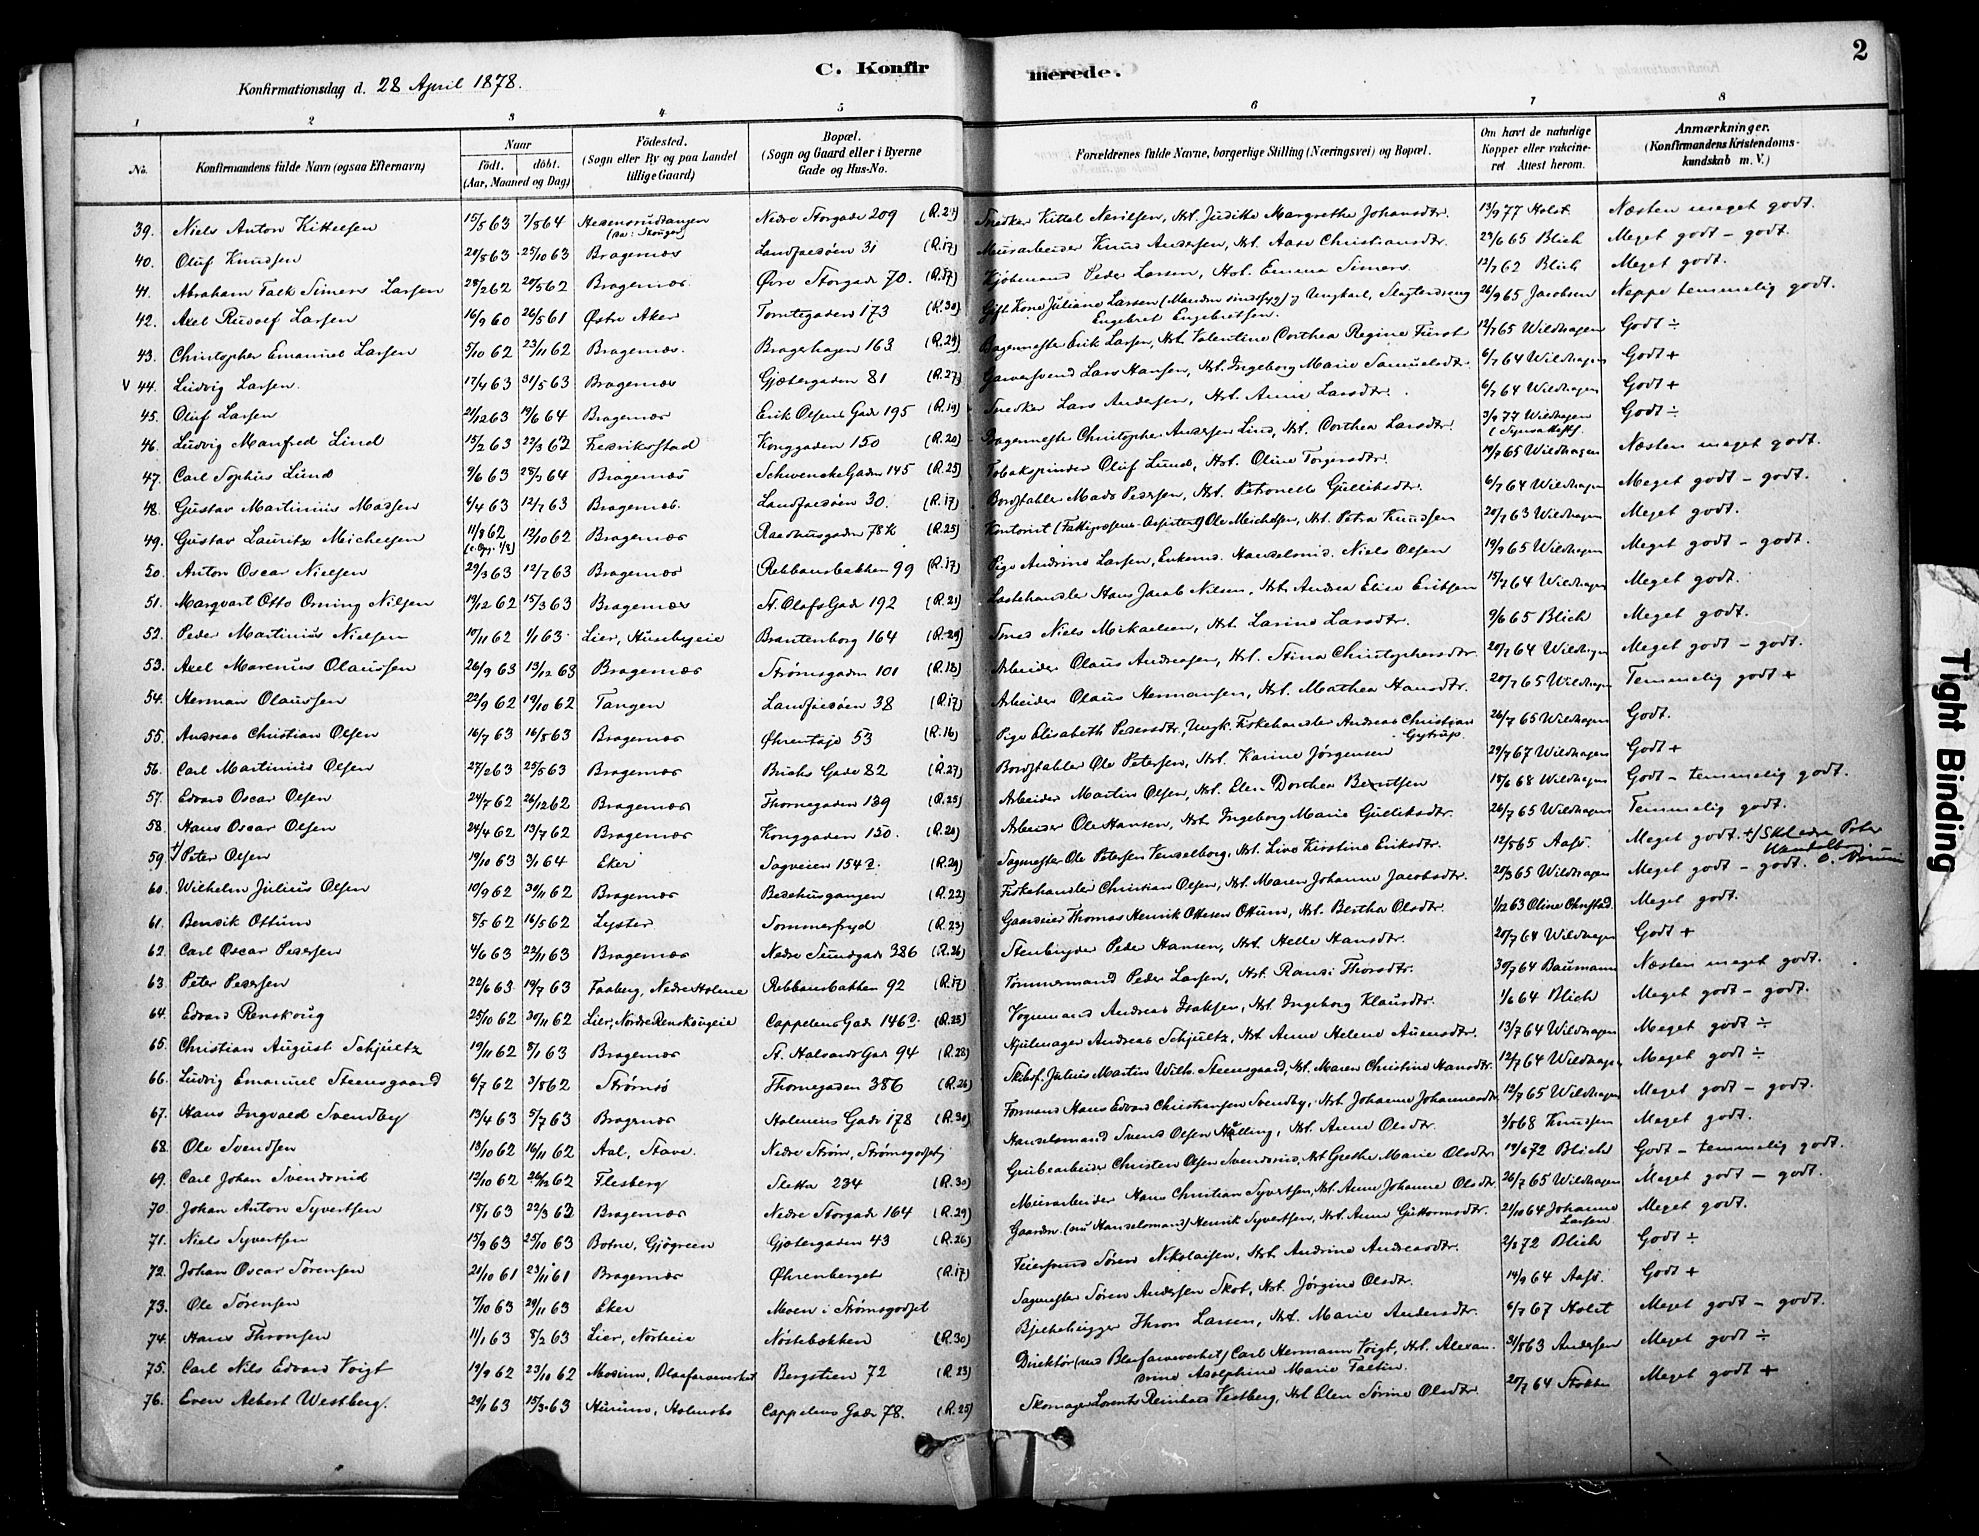 2
C. Konfirmerede.
Konfirmationsdag d. 28 April 1878.
1 2 3 4 5 6 7 8
No. Konfirmandens fulde Navn (ogsaa Efternavn) Naar født. døbt. (Aar, Maaned og Dag) Fødested. (Sogn eller By og paa Landet tillige Gaard) Bopæl. (Sogn og Gaard eller i Byerne Gade og Hus-No. Forældrenes fulde Navne, borgerlige Stilling (Næringsvei) og Bopæl. Om havt de naturlige Kopper eller vakcineret Attest herom. Anmærkninger. (Konfirmandens Kristendomskundskab m. V.)
39. Niels Anton Kittelsen 15/5 63 7/8 64 Nedre Storgade 209 (R.24) Snedker Kittel 13/9 77 Holst Næsten meget godt.
40. Oluf Knudsen 25/10 63 Bragernæs Landfaldsøen 31 (R.17) Murarbeider Knud Andersen, Hst. Aase Christiansdtr. 29/6 65 Blich Meget godt – godt.
41. Abraham Falk Simers Larsen 28/2 62 20/5 62 Bragernæs. Øvre Storgade 70. (R.17) Kjøbmand Peder Larsen, Hst. Emma Simers 12/7 62 Blich Meget godt.
42. Axel Rudolf Larsen 16/9 60 26/5 61 Østre Aker Tomtegaden 173 (R.30) Gift Kone Juliane Larsen (Manden sindssyg) og Ungkarl, Slagterdreng Engebret Engebretsen. 26/9 65 Jacobsen Neppe temmelig godt.
43. Christopher Emanuel Larsen 5/10 62 23/11 62 Bragernæs. Bragerhagen 163 (R.24) Bagermester Erik Larsen, Hst. Valentine Dorthea Regine Fürst 12/7 65 Wildhagen Godt ÷
V 44. Ludvig Larsen. 17/4 63 31/5 63 Bragernæs Gjætergaden 81 (R.27) Garversvend Lars Hansen, Hst. Ingeborg Marie Samuelsdtr. 6/7 64 Wildhagen Godt +
45. Oluf Larsen 21/12 63 19/6 64 Bragernæs Erik Olsens Gade 195 (R.19) Snedker Lars Andersen, Hst. Anne Larsdtr. 6/7 64 Wildhagen Godt +
46. Ludvig Manfred Lind 15/2 63 Fredrikstad Konggaden 150 (R.20) Bagermester Christopher Andersen Lind, Hst. Dorthea Larsdtr. 3/9 77 Wildhagen Godt ÷
47. Carl Sophus Lund 9/6 63 28/3 64 Bragernæs Schwenckes Gade 145 (R.25) Tobakspinder Oluf Lund, Hst. Oline Torgersdtr. 14/7 65 Wildhagen Næsten meget godt.
48. Gustav Martinius Madsen 6/4 63 12/7 63 Bragernæs. Landfaldsøen 30. (R.17) Bordstabler Mads Pedersen, Hst. Petronelle Gulliksdtr. 6/7 64 Wildhagen Meget godt – godt.
49. Gustav Lauritz Michelsen 11/8 62 12/10 62 Bragernæs Raadhusgaden 78 (R.25) Kontorist (Fattigvæsens-Assistent) Ole Michelsen, Hst. Petra Knudsen 20/7 63 Wildhagen Meget godt.
50. Anton Oscar Nielsen 29/3 63 12/7 63 Bragernæs Rebbansbakken 99 (R.17) Pige Andrine Larsen, Enkemd. Handelsmd. Niels Olsen 19/9 65 Wildhagen Meget godt – godt.
51. Marqvart Otto Orning Nilsen 19/12 62 15/3 63 Bragernæs St. Olafs Gade 192 (R.21) Lastehandler Hans Jacob Nilsen, Hst. Andrea Elise Eriksen 15/7 64 Wildhagen Meget godt.
52. Peder Martinius Nielsen 10/11 62 1/1 63 Lier, Husebyeie Brantenborg 164 (R.29) Smed Niels Mikaelsen, Hst. Larine Larsdtr. 9/6 65 Blich Meget godt.
53. Axel Marenius Olaussen 26/9 63 13/12 63 Bragernæs Strømsgaden 101 (R.18) Arbeider Olaus Andreasen, Hst. Stina Christophersdtr. 20/7 64 Wildhagen Meget godt – godt.
54. Herman Olaussen 22/9 62 19/10 62 Tangen Landfaldsøen 38 (R.17) Arbeider Olaus Hermansen, Hst. Mathea Hansdtr. 20/7 65 Wildhagen Temmelig godt +
55. Andreas Christian Olsen 16/7 63 16/8 63 Bragernæs Øhrentaje 53 (R.16) Pige Elisabeth Pedersdtr., Ungk. Fiskehandler Andreas Christian Gytrup. 26/7 65 Wildhagen Godt.
56. Carl Martinius Olsen 27/2 63 25/5 63 Bragernæs Buchs Gade 82 (R.27) Bordstabler Ole Petersen, Hst. Karine Jørgensen 29/7 67 Wildhagen Godt +
57. Edvard Oscar Olsen 24/7 62 26/12 62 Bragernæs Thornegaden 139 (R.25) Arbeider Martin Olsen, Hst. Elen Dorthea Berntsen 15/6 68 Wildhagen Godt – temmelig godt.
58. Hans Oscar Olsen 24/4 62 13/7 62 Bragernæs Konggaden 150. (R.20) Arbeider Ole Hansen, Hst. Ingeborg Marie Gulliksdtr. 26/7 65 Wildhagen Temmelig godt.
59. +/ Peter Olsen 19/10 63 3/1 64 Eker Sagveien 154 (R.29) Sagmester Ole Petersen Venselborg, Hst. Live Kirstine Eriksdtr. 12/5 65 Aass Meget godt. +/ Skal være Peter
60. Wilhelm Julius Olsen 10/9 62 30/11 62 Bragernæs Bedehusgangen (R.22) Fiskehandler Christian Olsen, Hst. Maren Johanne Jacobsdtr. 20/3 65 Wildhagen Meget godt – godt.
61. Bendik Ottum 8/5 62 16/5 62 Lyster Sommerfryd (R.23) Gaardeier Thomas Henrik Ottesen Ottum, Hst. Bertha Olsdtr. 1/12 63 Oline Christad. Meget godt.
62. Carl Oscar Pedersen 4/6 63 22/11 63 Bragernæs Nedre Sundgade 386 (R.26) Stenbryder Peder Hansen, Hst. Helle Hansdtr. 20/7 64 Wildhagen Godt +
63. Peter Pedersen 22/6 63 19/7 63 Faaberg, Nedre Holme Rebbansbakken 92 (R.17) Tømmermand Peder Larsen, Hst. Randi Thorsdtr. 30/7 64 Baumann Næsten meget godt.
64. Edvard Renskoug 25/10 62 30/11 62 Lier, Nordre Renskougeie Cappelens Gade 146 (R.25) Vognmand Andreas Isaksen, Hst. Ingeborg Klausdtr. 1/6 64 Blich Meget godt – godt.
65. Christian August Schjultz 19/11 62 8/1 63 Bragernæs St. Halvards Gade 94 (R.28) Hjulmager Andreas Schjultz, Hst. Anne Helene Auensdtr. 13/7 64 Wildhagen Meget godt ÷
66. Ludvig Emanuel Steensgaard 6/7 62 3/8 62 Strømsø Thornegaden 386 (R.26) Skibsf. Julius Martin Wilh. Steensgaard, Hst. Maren Christine Hansdtr. 12/7 64 Wildhagen Meget godt ÷
67. Hans Ingvald Svendby 13/4 63 5/7 63 Bragernæs Holmens Gade 178 (R.30) Formand Hans Edvard Christiansen Svendby, Hst. Johanne Johannesdtr. 12/7 65 Wildhagen Meget godt – godt.
68. Ole Svendsen 13/10 62 16/11 62 Aal, Stave. Nedre Strøm, Strømsgodset Handelsmand Svend Olsen Halling, Hst. Anne Olsdtr. 3/8 68 Knudsen Meget godt.
69. Carl Johan Svendsrud 12/10 62 26/12 62 Flesberg Sletta 234 (R.30) Grubearbeider Christen Olsen Svendsrud, Hst. Grethe Marie Olsdtr. 19/6 72 Blich Godt – temmelig godt.
70. Johan Anton Syvertsen 18/1 63 22/3 63 Bragernæs Nedre Storgade 164 (R.29) Murarbeider Hans Christian Syvertsen, Hst. Anne Johanne Olsdtr. 26/7 65 Wildhagen Meget godt – godt.
71. Niels Syvertsen 15/9 63 25/10 63 Botne, Gjøgreien Gjætergaden 43 (R.26) Gaardm. (nu Handelsmand) Henrik Syvertsen, Hst. Anne Guttormsdtr. 21/10 64 Johanne Larsen Meget godt.
72. Johan Oscar Sørensen 21/10 61 23/11 61 Bragernæs Øhrenberget (R.17) Feiersvend Søren Nikolaisen, Hst. Andrine Andreasdtr. 2/8 72 Blich Godt ÷
73. Ole Sørensen 7/10 63 29/11 63 Eker Moen i Strømsgodset Sagmester Søren Andersen Skot, Hst. Jørgine Olsdtr. 14/9 64 Aass. Godt +
74. Hans Thronsen 11/1 63 8/2 63 Lier, Nørsteie Nøstebakken (R.30) Bjelkehugger Thron Larsen, Hst. Marie Andersdtr. 6/7 67 Holst Meget godt – godt.
75. Carl Nils Edvard Voigt 19/9 62 23/10 62 Modum, Blaafarveverket Bergstien 72 (R.23) Direktør (ved Blaafarveverket) Carl Hermann Voigt, Hst. Alexandrine Adolphine Marie Faltin. 31/8 63 Andersen Meget godt ÷
76. Even Albert Westberg. 29/1 63 15/3 63 Hurum, Holmsbo Cappelens Gade 78. (R.25) Skomager Lorents Reinhard Vestberg, Hst. Elen Sørine Olsdtr. 20/7 64 Meget godt +
Tight Binding